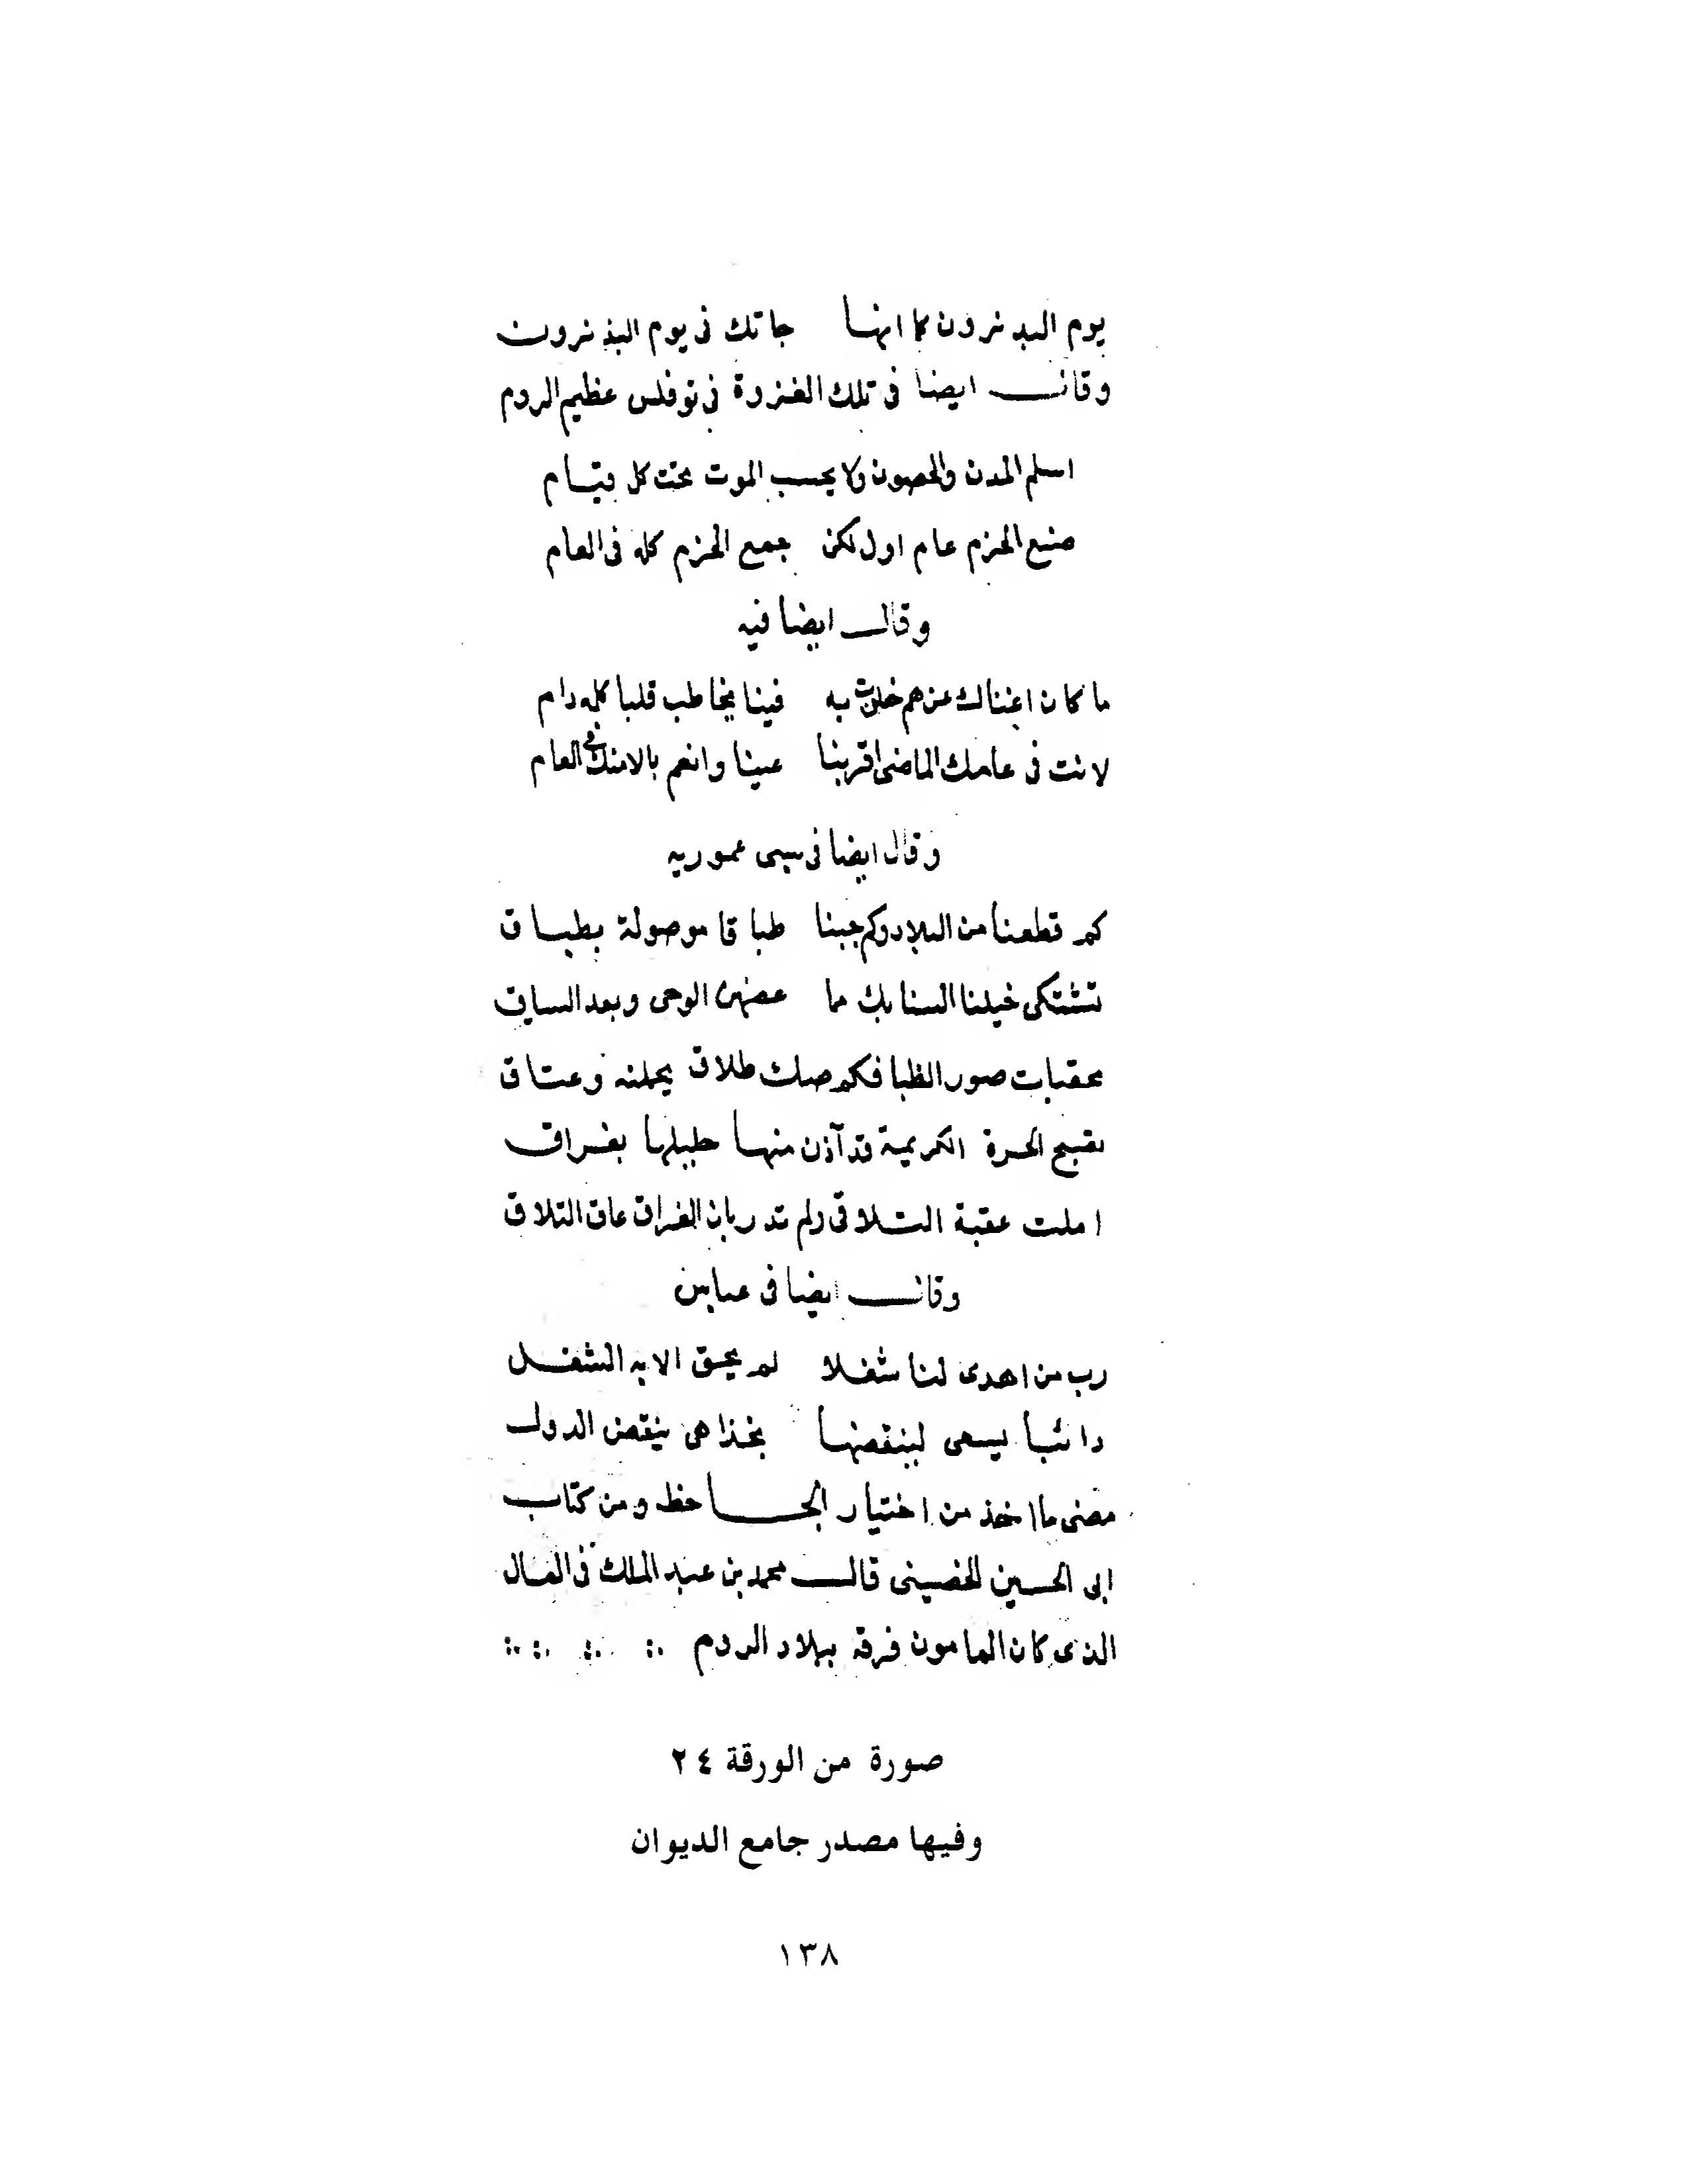 يوم البدنرون كما انها جاتك فى يوم البذنرون
وقال ايضا فى تلك الغزوة فى توفلس عظيم الروم
اسلم المدن والحصون ولا يحسب الموت تحت كل قتام
صنع الحزم عام اول لكن جمع الحزم كله فى العام
وقال ايضا فيه
ما كان اغناك عن هم خلوت به فينا يخاطب قلبا كله دام
لانت فى عامك الماضى اقربنا عينا وانعم بالامنك فى العام
وقال ايضا فى سبى عموريه
كم قطعنا من البلاد وكم جبنا طباقا موصولة بطباق
تشتكى خيلنا السنابك مما عضهن الوحى وبعد الساق
بعقبات صور الظبا فكم صك طلاق يحملنه وعتاق
بقبح الحرة الكريمة قد آذن منها حليلها بفراق
املت عقبة التلاقى ولم تدر بان الفراق عاق التلاق
وقال ايضا فى عباس
رب من اهدى لنا شغلا لم يحق الا به الشغل
دائبا يسعى لينقضها بخذاهى ينقض الدول
مضى ما اخذ من اختيار الجاحظ ومن كتاب
ابى الحسين الخصينى قال محمد بن عبد الملك فى المال
الذى كان المامون فرقه ببلاد الروم
صورة من الورقة ٢٤
وفيها مصدر جامع الديوان
١٣٨